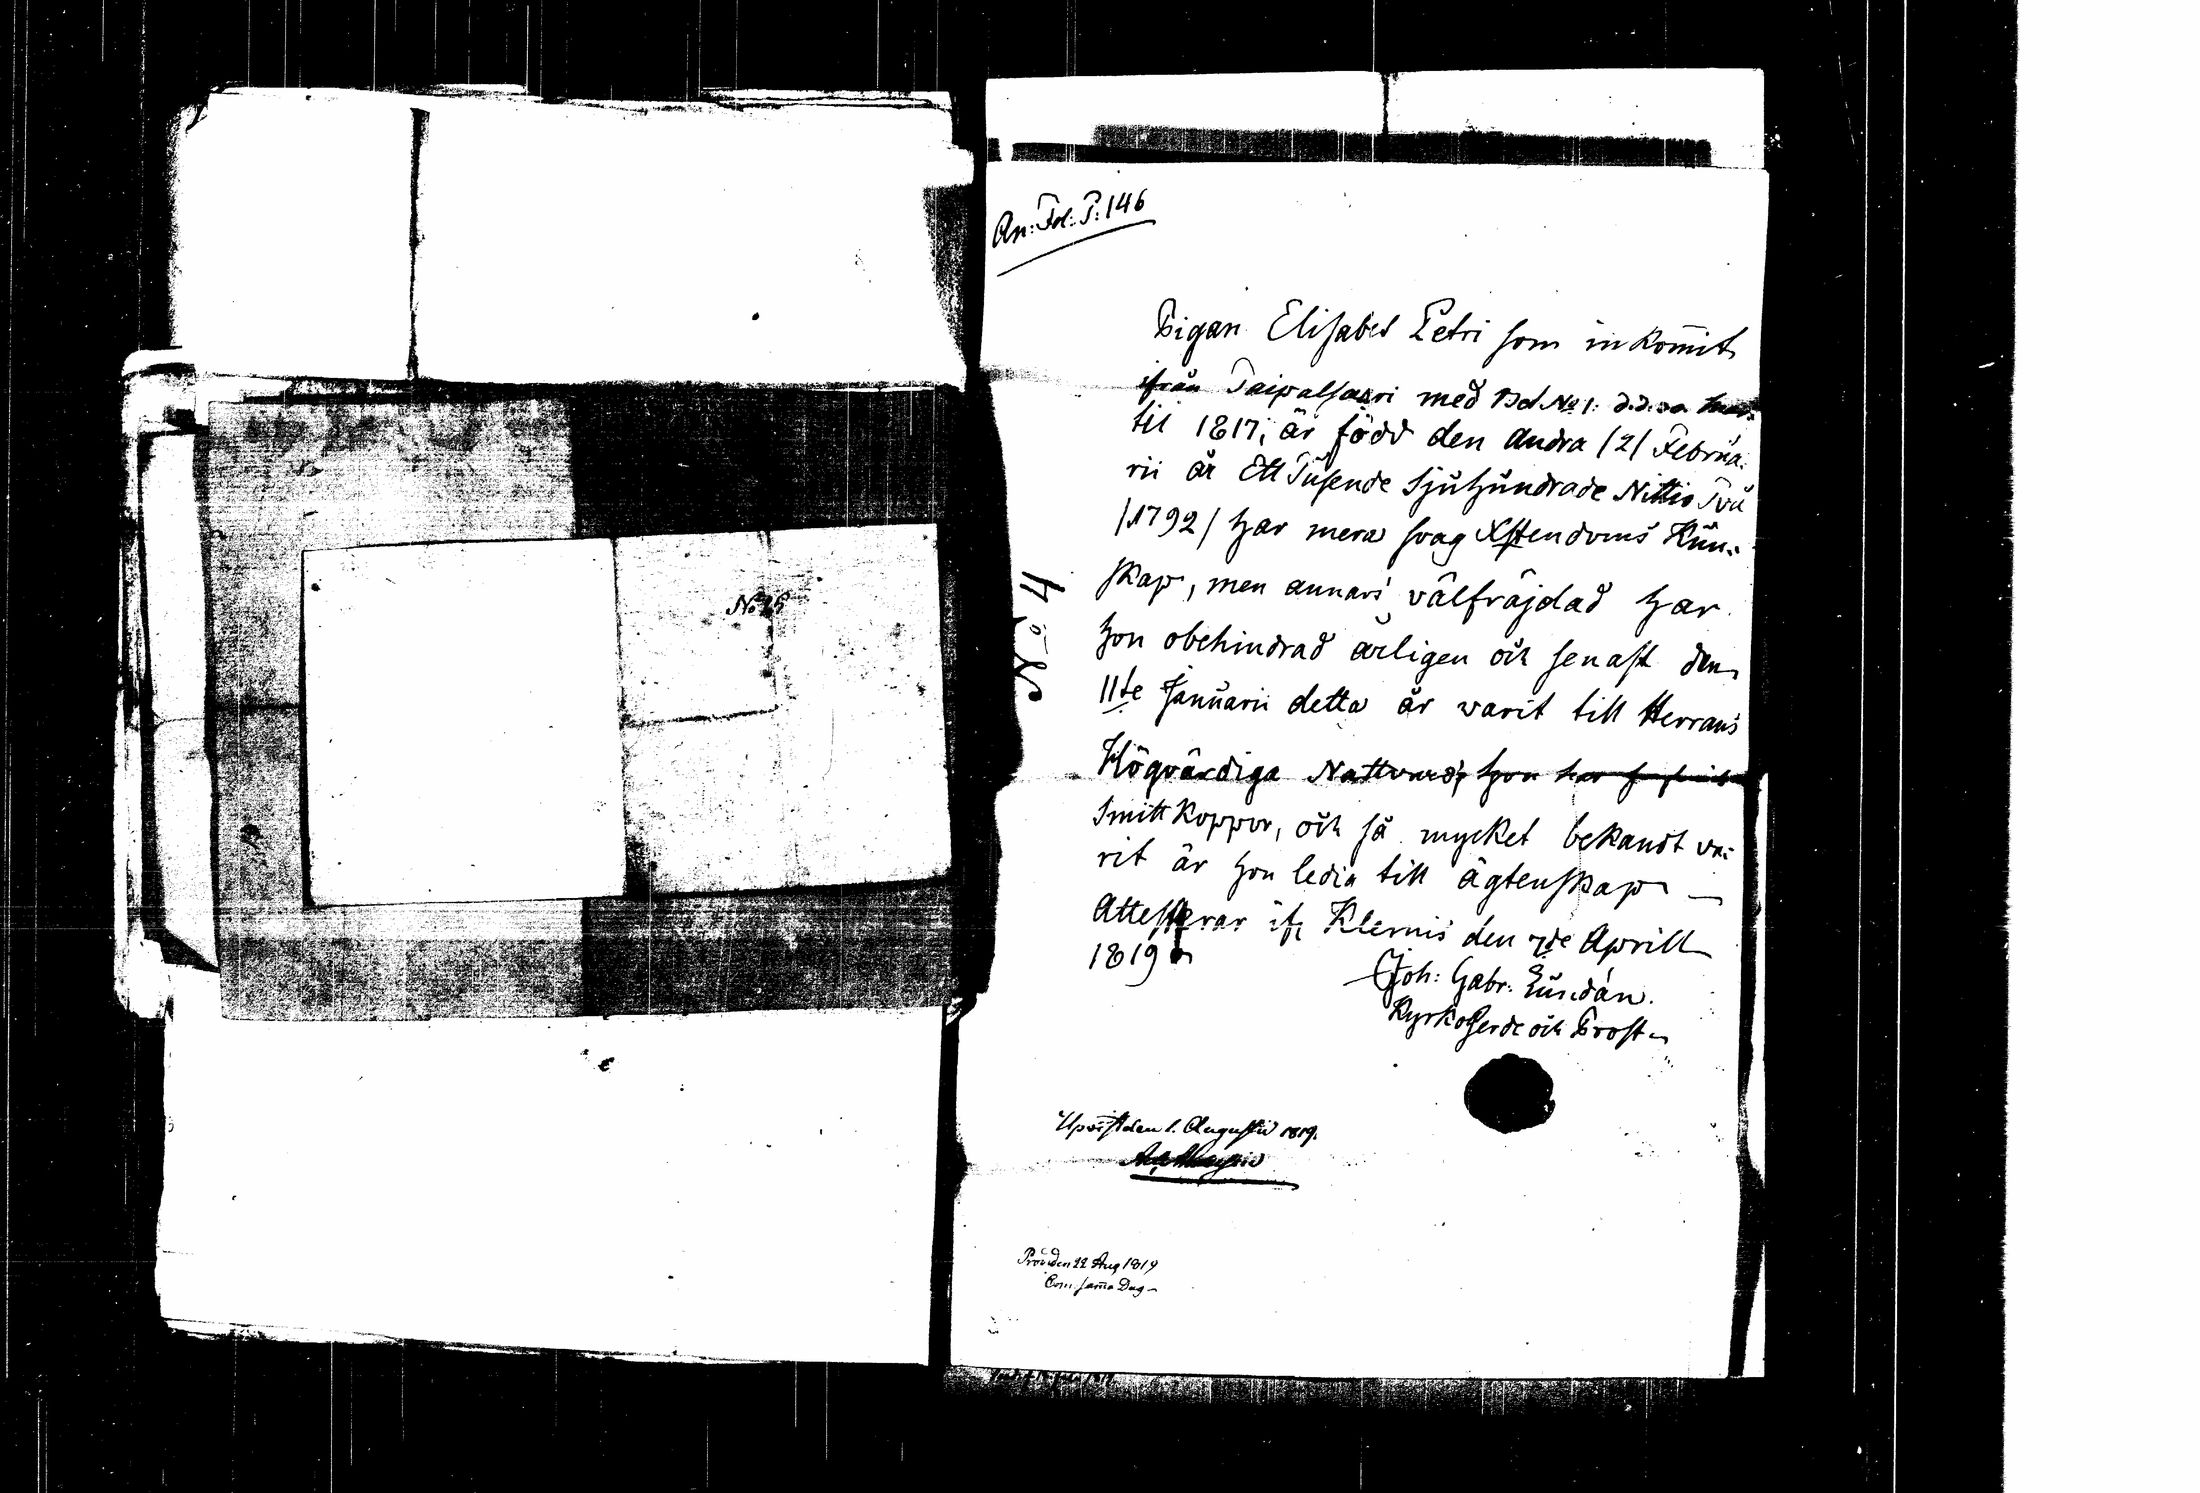 An: Fol: P: 146
Pigan Elisabet Petri som inkom̄it
ifrån Taipalsaari med Bd. No 1: d.d.
til 1817, är född den Andra /2/ Februa:
rii år Ett Tusende Sjuhundrade Nittio Två
/1792/ har mera svag Xstendoms Kun:
skap, men annars välfräjdad har
hon obehindrad årligen och senast den
11te Januarii detta år varit till Herrans
Högvärdiga Nattvard, hon har
Smittkoppor, och så mycket bekandt va:
rit är hon ledig till ägtenskap
Attesterar if. Klemis den 7de Aprill
1819
Joh: Gabr: Lundán.
KyrkoHerde och Prost
No 4
No 25
Upvist den 1. Augusti 1819.
Pröv. den 22 Aug 1819
Com. sam̄a Dag